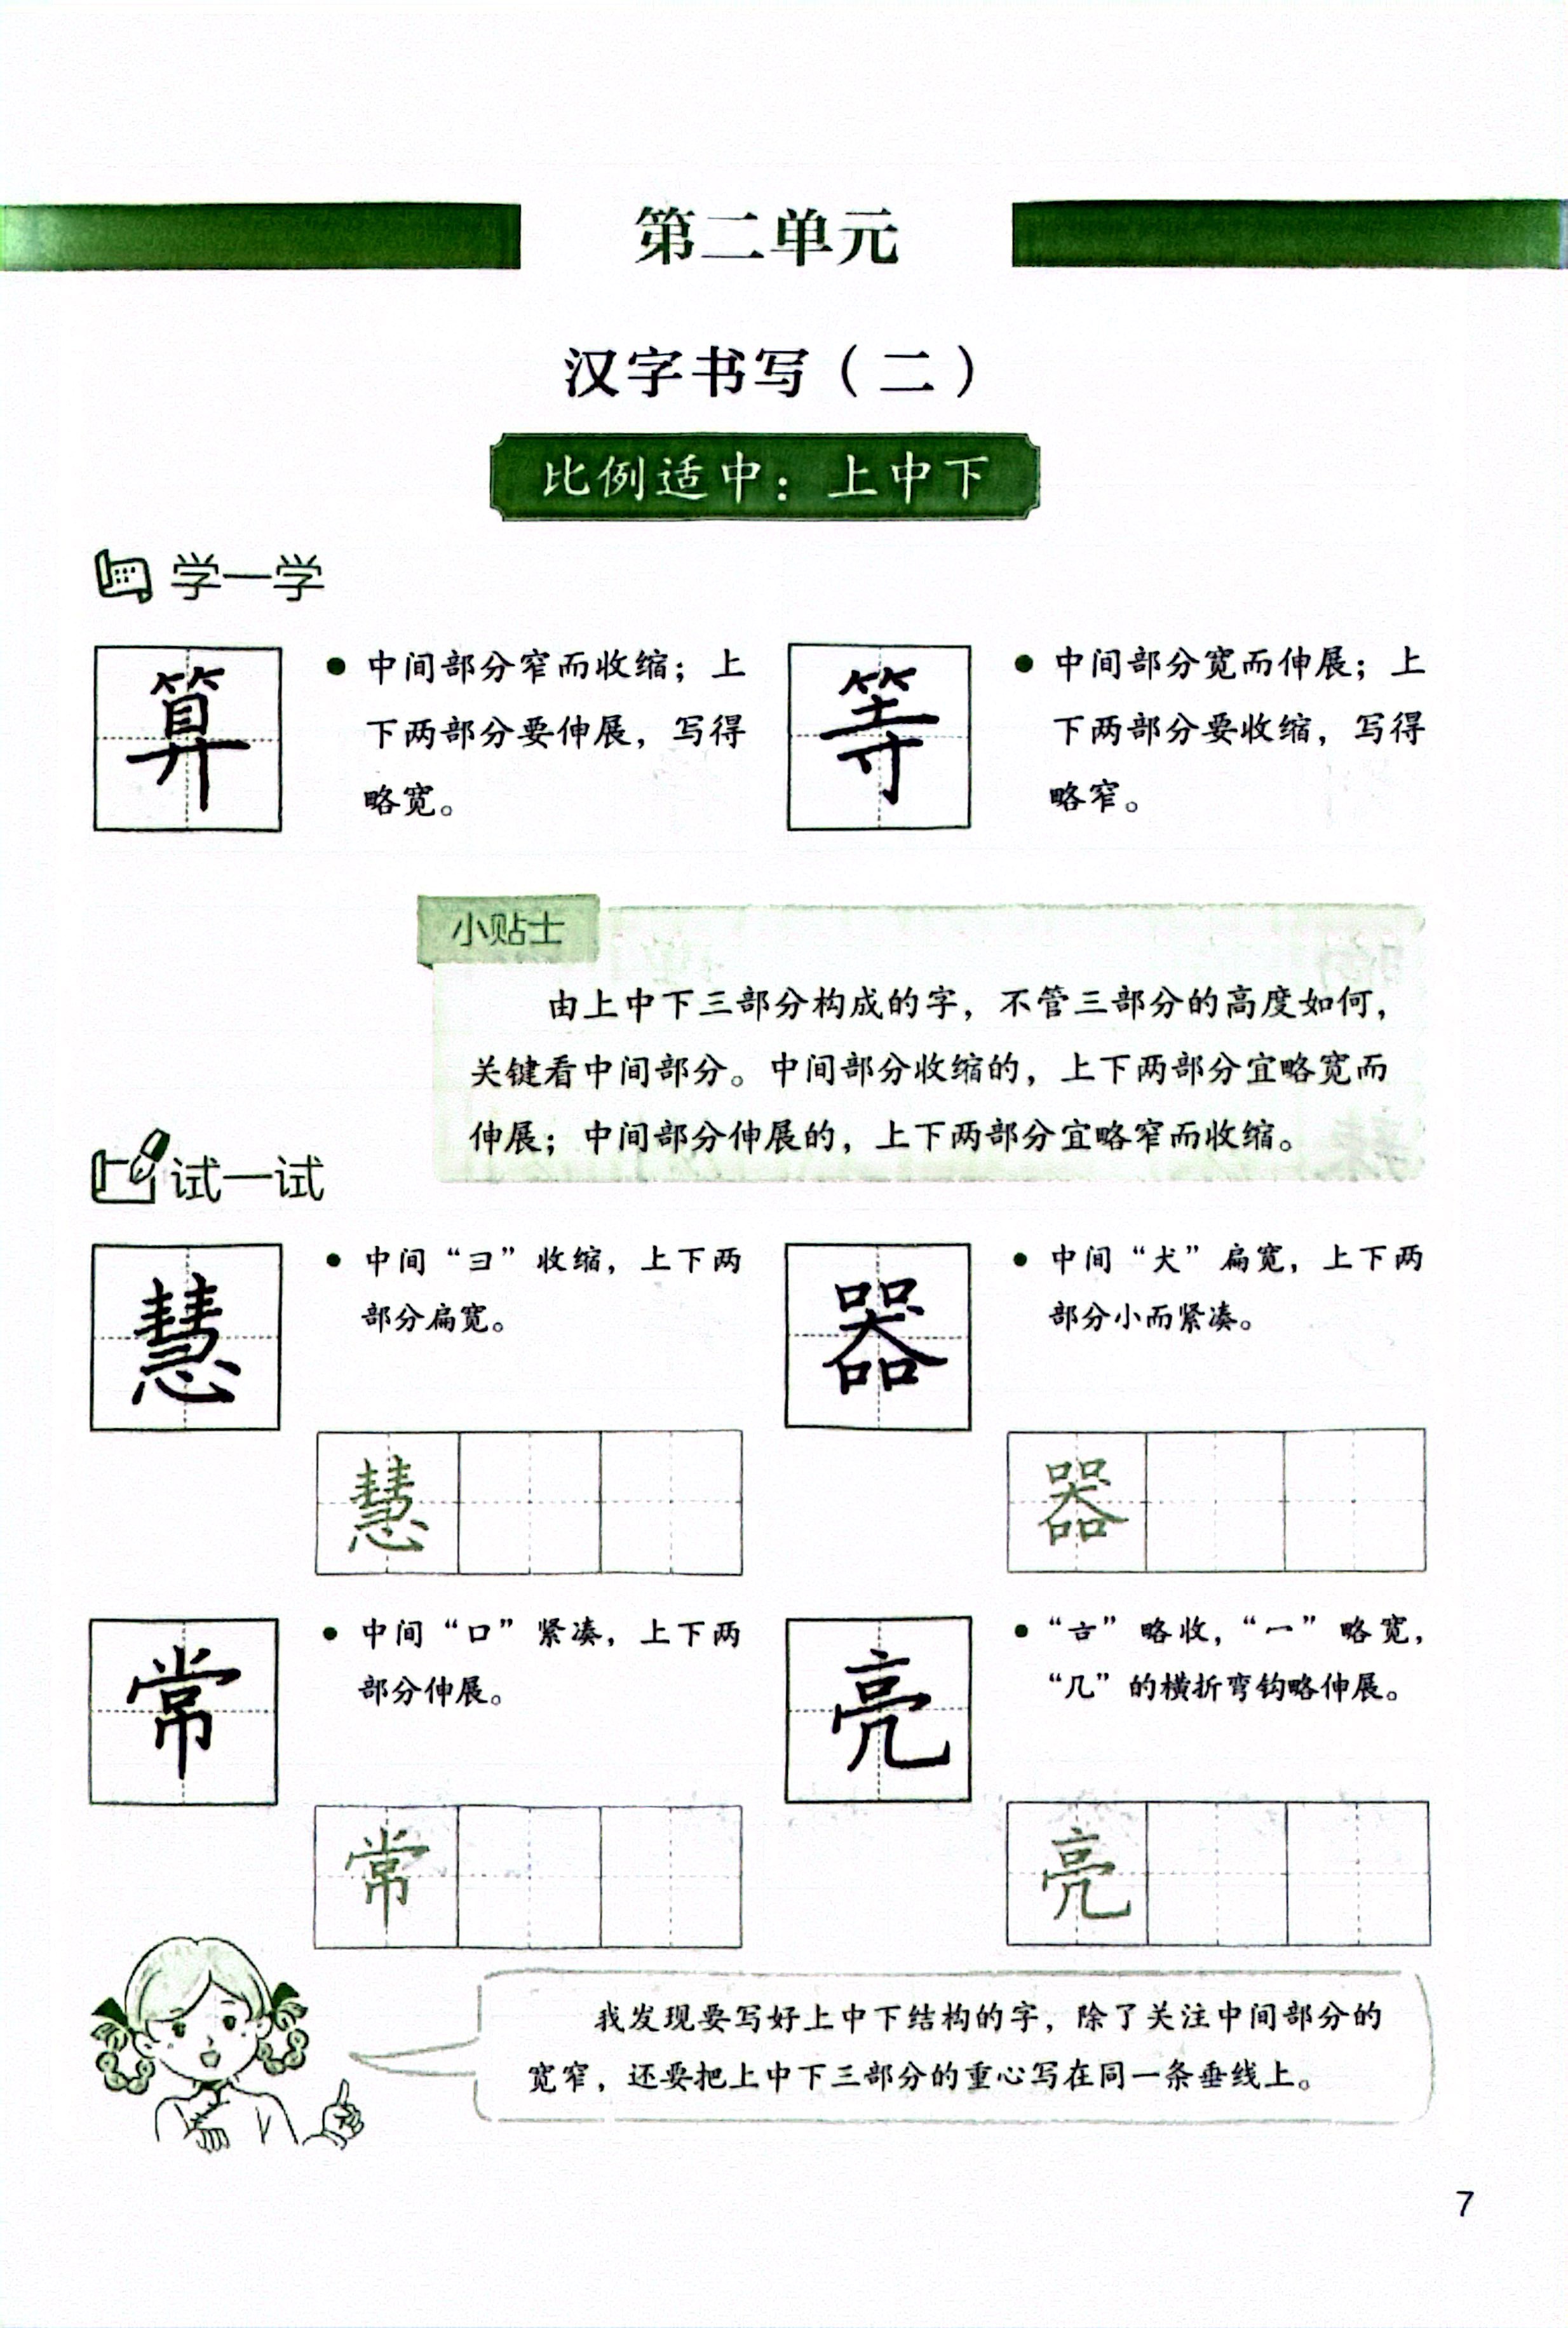 第二单元
汉字书写（二）
比例适中：上中下
学一学
算
中间部分窄而收缩；上
下两部分要伸展，写得
略宽。
等
中间部分宽而伸展；上
下两部分要收缩，写得
略窄。
小贴士
由上中下三部分构成的字，不管三部分的高度如何，
关键看中间部分。中间部分收缩的，上下两部分宜略宽而
伸展；中间部分伸展的，上下两部分宜略窄而收缩。
试一试
慧
中间“彐”收缩，上下两
部分扁宽。
慧
器
中间“犬”扁宽，上下两
部分小而紧凑。
器
常
中间“口”紧凑，上下两
部分伸展。
常
亮
“𠮷”略收，“冖”略宽，
“几”的横折弯钩略伸展。
亮
我发现要写好上中下结构的字，除了关注中间部分的
宽窄，还要把上中下三部分的重心写在同一条垂线上。
7